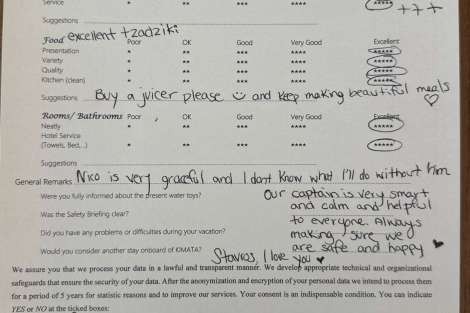 Service * ** *** **** ***** +++
Suggestions
Food excellent +zadziki
Poor OK Good Very Good Excellent
Presentation * ** *** **** *****
Variety * ** *** **** *****
Quality * ** *** **** *****
Kitchen (clean) * ** *** **** *****
Suggestions Buy a juicer please ☺ and keep making beautiful meals ♡
Rooms/ Bathrooms Poor OK Good Very Good Excellent
Neatly * ** *** **** *****
Hotel Service
(Towels, Bed,...) * ** *** **** *****
Suggestions
General Remarks Nico is very graceful and I dont know what I'll do without him
Were you fully informed about the present water toys? Our captain is very smart
and calm and helpful
Was the Safety Briefing clear? to everyone. Always
Did you have any problems or difficulties during your vacation? making sure we
Would you consider another stay onboard of KIMATA? are safe and happy ♥
Stavros, I love you ♥
We assure you that we process your data in a lawful and transparent manner. We develop appropriate technical and organizational
safeguards that ensure the security of your data. After the anonymization and encryption of your personal data we intend to process them
for a period of 5 years for statistic reasons and to improve our services. Your consent is an indispensable condition. You can indicate
YES or NO at the ticked boxes: